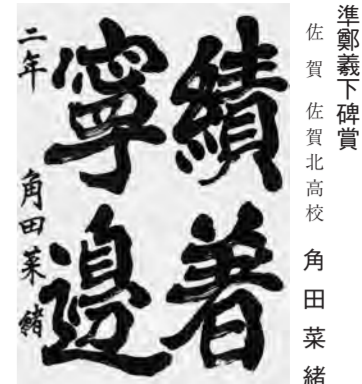 準鄭羲下碑賞
佐賀 佐賀北高校 角田菜緒
績着
寧邊
二年 角田菜緒